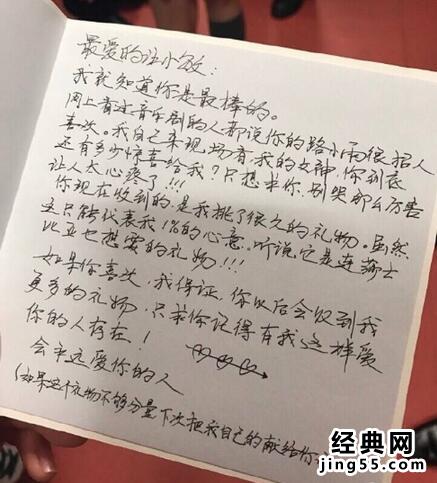 最爱的汪小敏：
我就知道你是最棒的。
网上看过音乐剧的人都说你的路小雨很招人
喜欢。我自己来现场看我的女神，你到底
还有多少惊喜给我？只想求你，别哭那么厉害
让人太心疼了!!!
你现在收到的，是我挑了很久的礼物。虽然
这只能代表我1%的心意。听说，它是连蒲士
比亚也想要的礼物!!!
如果你喜欢，我保证，你以后会收到我
更多的礼物，只求你记得有我这样爱
你的人存在！
会永远爱你的人
(如果这个礼物不够分量下次把我自己的献给你
经典网
jing55.com